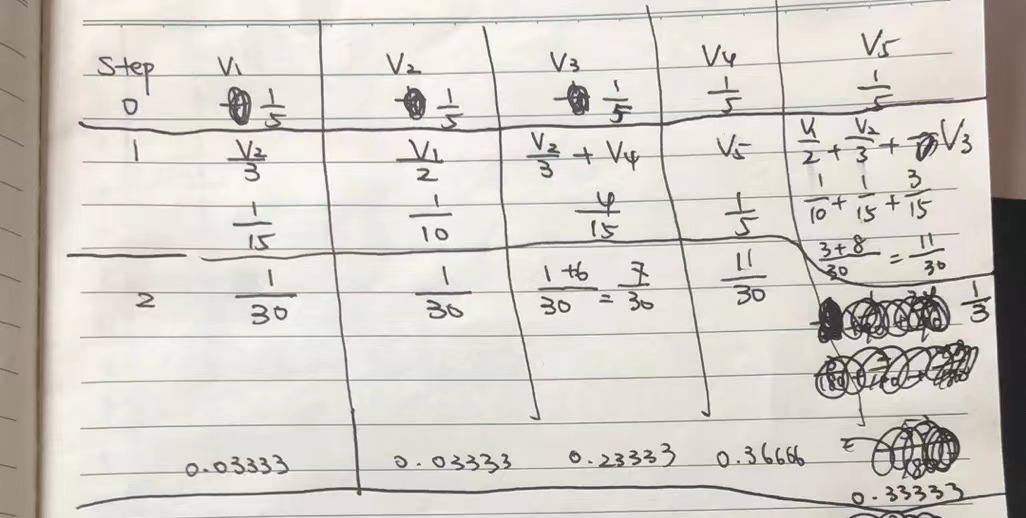 Step V1 V2 V3 V4 V5
0 1/5 1/5 1/5 1/5 1/5
1 V2/3 V1/2 V2/3 + V4 V5 V1/2 + V2/3 + V3
1/15 1/10 4/15 1/5 1/10 + 1/15 + 3/15
3+8/30 = 11/30
2 1/30 1/30 1+6/30 = 7/30 11/30 1/3
0.03333 0.03333 0.23333 0.36666 =
0.33333